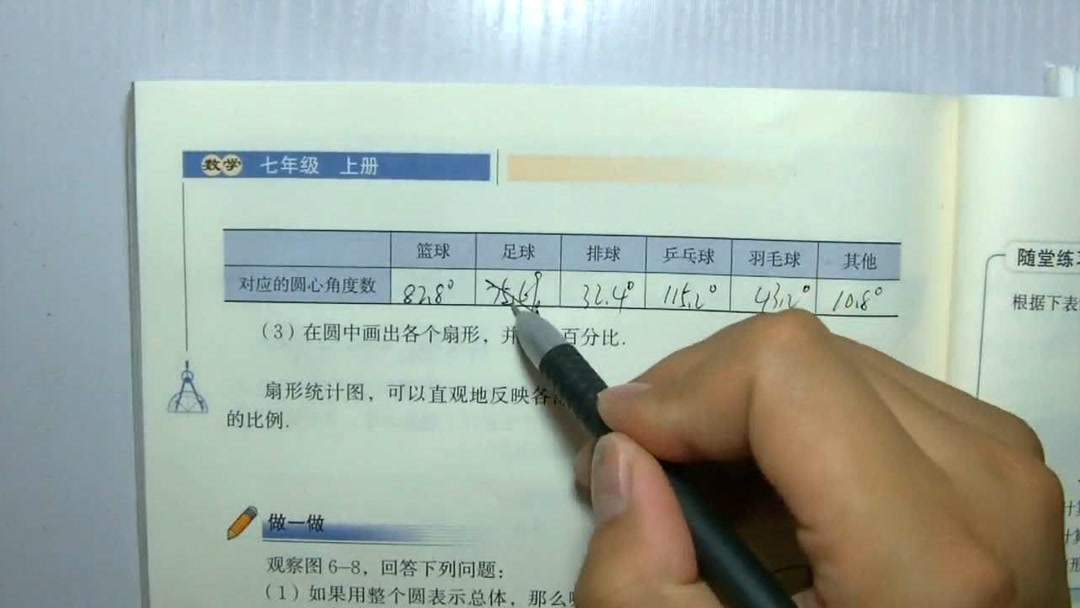 数学 七年级 上册
篮球 足球 排球 乒乓球 羽毛球 其他
对应的圆心角度数 82.8° 75.6° 32.4° 115.2° 43.2° 10.8°
(3)在圆中画出各个扇形，并 百分比.
扇形统计图，可以直观地反映各
的比例.
做一做
观察图6-8，回答下列问题：
(1)如果用整个圆表示总体，那么
随堂练习
根据下表